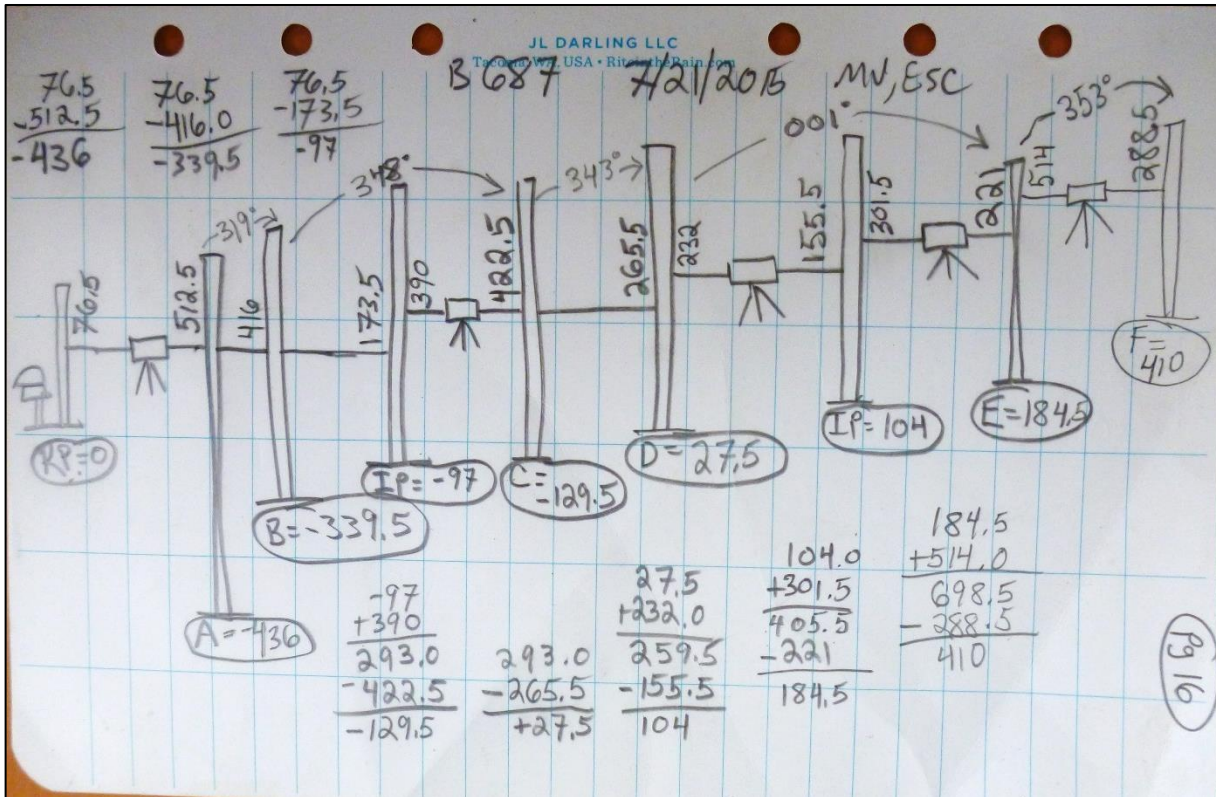 JL DARLING LLC
Tacoma, WA, USA • RiteintheRain.com
B 687 7/21/2015 MV, ESC
76.5
-512.5
-436
76.5
-416.0
-339.5
76.5
-173.5
-97
319°
348°
343°
001°
353°
76.5
512.5
416
173.5
390
422.5
265.5
232
155.5
301.5
221
514
288.5
RP=0
A=-436
B=-339.5
IP=-97
C=
-129.5
D=27.5
IP=104
E=184.5
F=
410
-97
+390
293.0
-422.5
-129.5
293.0
-265.5
+27.5
27.5
+232.0
259.5
-155.5
104
104.0
+301.5
405.5
-221
184.5
184.5
+514.0
698.5
-288.5
410
Pg 16